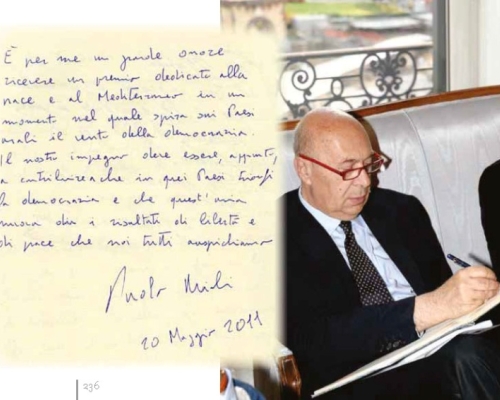 È per me un grande onore
ricevere un premio dedicato alla
pace e al Mediterraneo in un
momento nel quale spira sui Paesi
arabi il vento della democrazia.
Il nostro impegno deve essere, appunto,
a contribuire che in quei Paesi trionfi
la democrazia e che quest'aria
nuova dia i risultati di libertà e
di pace che noi tutti auspichiamo
Paolo Mieli
20 Maggio 2011
236